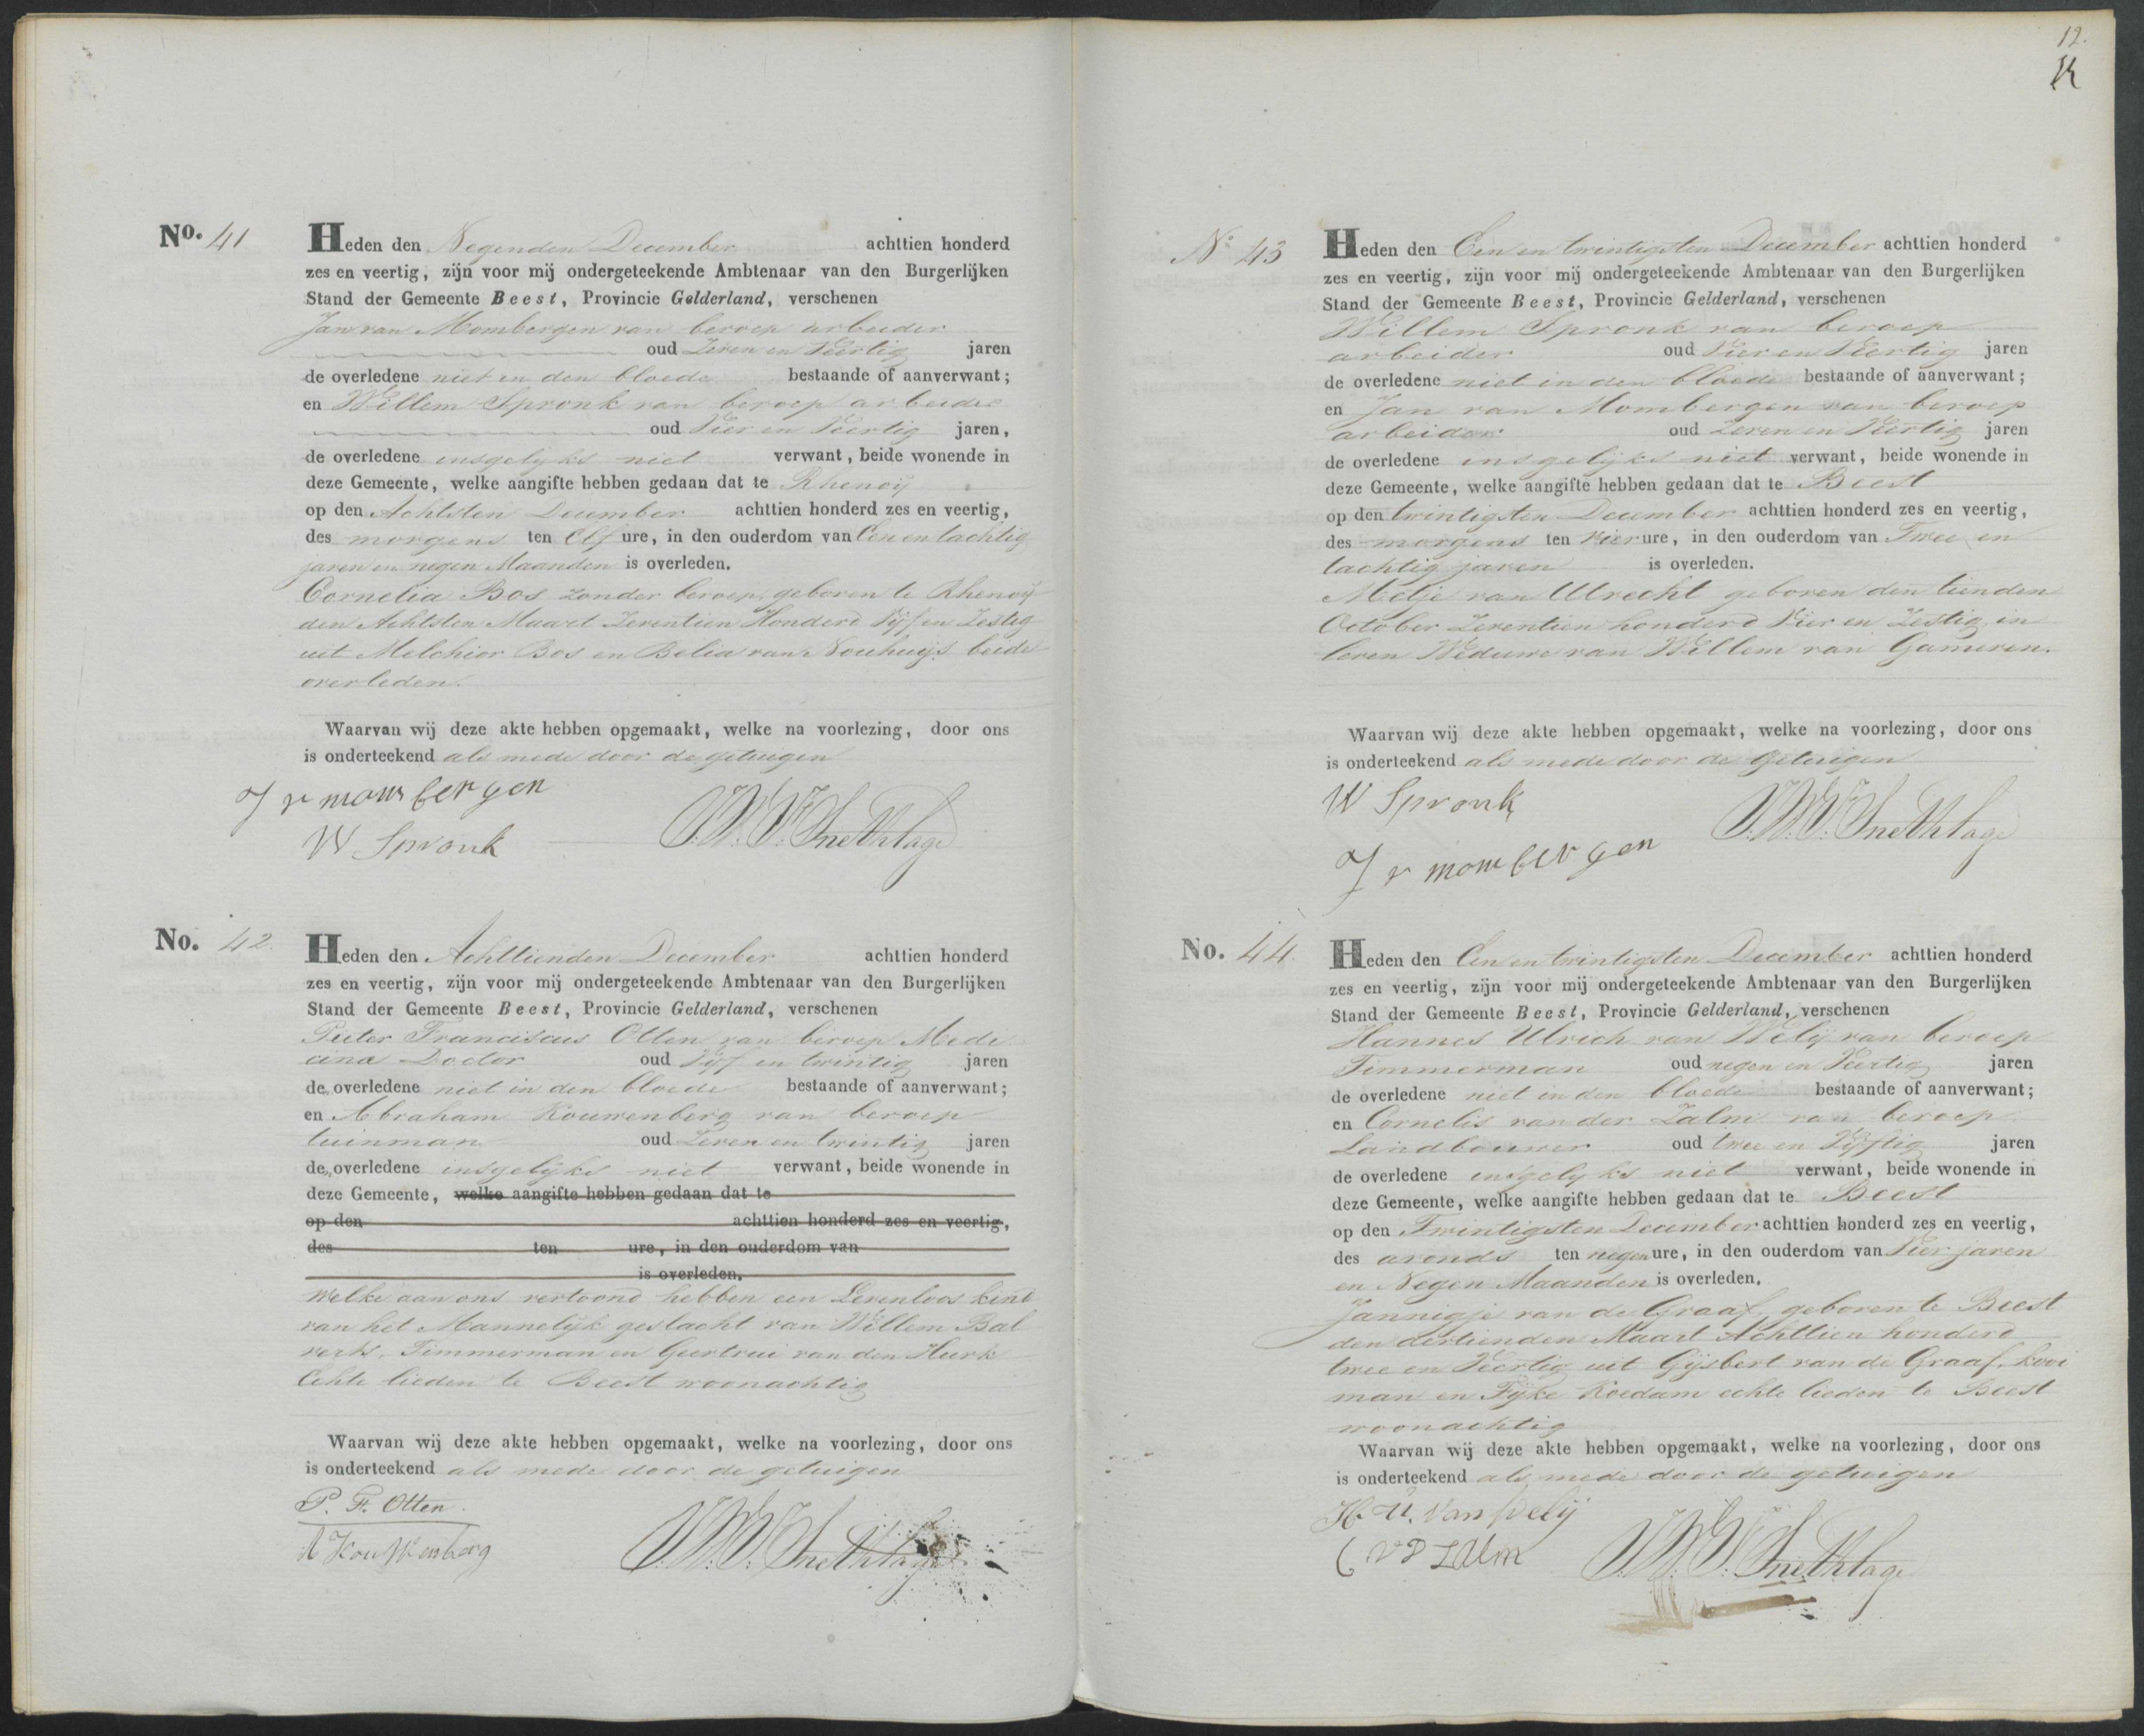 No. 41
Heden den Negenden December achttien honderd
zes en veertig, zijn voor mij ondergeteekende Ambtenaar van den Burgerlijken
Stand der Gemeente Beest, Provincie Gelderland, verschenen
Jan van Mombergen van beroep arbeider
oud Zeven en Veertig jaren
de overledene niet in den bloede bestaande of aanverwant;
en Willem Spronk van beroep arbeider
oud Vier en Veertig jaren,
de overledene insgelijks niet verwant, beide wonende in
deze Gemeente, welke aangifte hebben gedaan dat te Rhenoij
op den Achtsten December achttien honderd zes en veertig,
des morgens ten Elf ure, in den ouderdom van Een en tachtig
jaren en negen Maanden is overleden.
Cornelia Bos zonder beroep, geboren te Rhenoij
den Achtsten Maart Zeventien Honderd Vijf en Zestig
uit Melchior Bos en Belia van Nouhuijs beide
overleden.
Waarvan wij deze akte hebben opgemaakt, welke na voorlezing, door ons
is onderteekend als mede door de getuigen
J v mombergen
W Spronk
J.W.F. Snethlage
No. 42.
Heden den Achttienden December achttien honderd
zes en veertig, zijn voor mij ondergeteekende Ambtenaar van den Burgerlijken
Stand der Gemeente Beest, Provincie Gelderland, verschenen
Pieter Franciscus Otten van beroep Medi
cina Doctor oud Vijf en twintig jaren
de overledene niet in den bloede bestaande of aanverwant;
en Abraham Kouwenberg van beroep
tuinman oud Zeven en twintig jaren
de overledene insgelijks niet verwant, beide wonende in
deze Gemeente, welke aangifte hebben gedaan dat te
op den achttien honderd zes en veertig,
des ten ure, in den ouderdom van
is overleden.
welke aan ons vertoond hebben een Levenloos kind
van het Mannelijk geslacht van Willem Bal
verts, Timmerman en Geertrui van den Hurk
Echte lieden te Beest woonachtig
Waarvan wij deze akte hebben opgemaakt, welke na voorlezing, door ons
is onderteekend als mede door de getuigen
P. F. Otten
A Kouwenberg
J.W.F. Snethlage
12.
No 43
Heden den Een en twintigsten December achttien honderd
zes en veertig, zijn voor mij ondergeteekende Ambtenaar van den Burgerlijken
Stand der Gemeente Beest, Provincie Gelderland, verschenen
Willem Spronk van beroep
arbeider oud Vier en Veertig jaren
de overledene niet in den bloede bestaande of aanverwant;
en Jan van Mombergen van beroep
arbeider oud Zeven en Veertig jaren
de overledene insgelijks niet verwant, beide wonende in
deze Gemeente, welke aangifte hebben gedaan dat te Beest
op den twintigsten December achttien honderd zes en veertig,
des morgens ten vier ure, in den ouderdom van Twee en
tachtig jaren is overleden.
Metje van Utrecht geboren den tienden
October Zeventien honderd Vier en Zestig, in
leven Weduwe van Willem van Gameren.
Waarvan wij deze akte hebben opgemaakt, welke na voorlezing, door ons
is onderteekend als mede door de Getuigen
W Spronk
J v mombergen
J.W.F. Snethlage
No. 44.
Heden den Een en twintigsten December achttien honderd
zes en veertig, zijn voor mij ondergeteekende Ambtenaar van den Burgerlijken
Stand der Gemeente Beest, Provincie Gelderland, verschenen
Hannes Ulrich van Welij van beroep
Timmerman oud negen en Veertig jaren
de overledene niet in den bloede bestaande of aanverwant;
en Cornelis van der Zalm van beroep
Landbouwer oud twee en Vijftig jaren
de overledene insgelijks niet verwant, beide wonende in
deze Gemeente, welke aangifte hebben gedaan dat te Beest
op den Twintigsten December achttien honderd zes en veertig,
des avonds ten negen ure, in den ouderdom van Vier jaren
en Negen Maanden is overleden.
Jannigje van de Graaf, geboren te Beest
den dertienden Maart Achttien honderd
twee en Veertig uit Gijsbert van de Graaf, kooi
man en Fijke Koedam echte lieden te Beest
woonachtig
Waarvan wij deze akte hebben opgemaakt, welke na voorlezing, door ons
is onderteekend als mede door de getuigen
H. U. van Welij
C v d Zalm
J.W.F. Snethlage